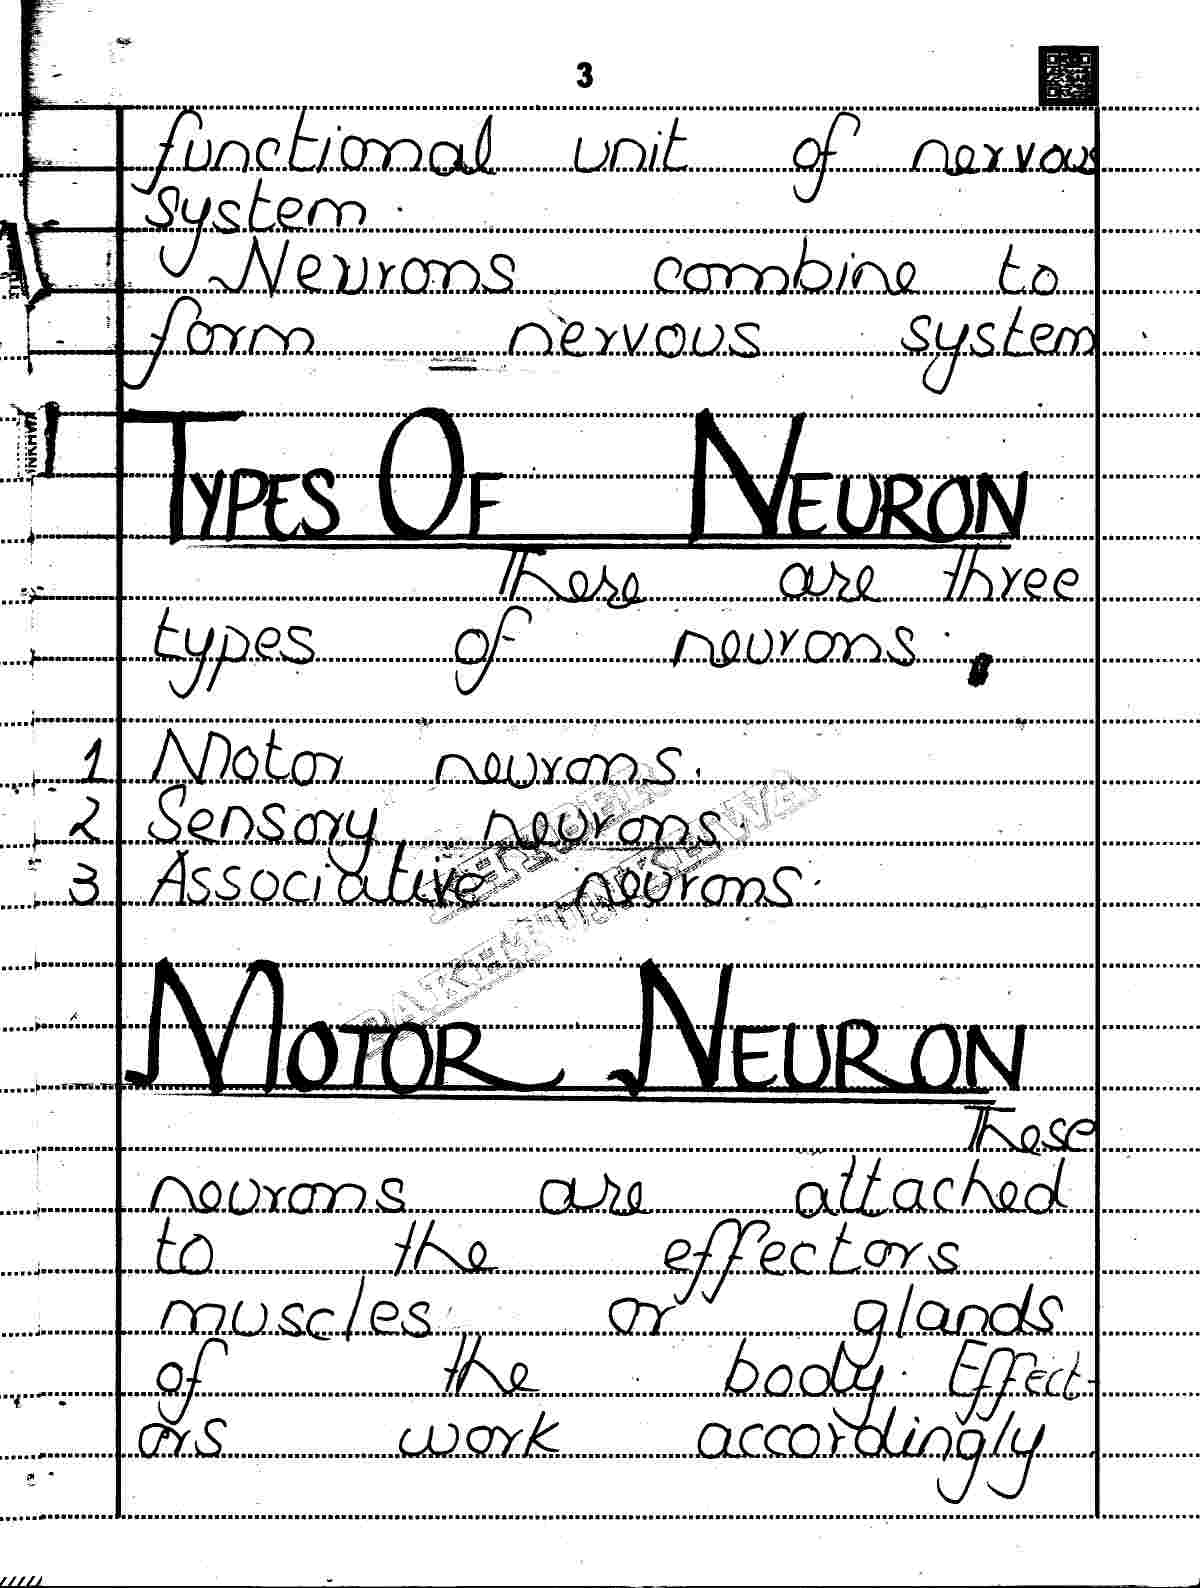 3
functional unit of nervous
system.
Neurons combine to
form nervous system
TYPES OF NEURON
There are three
types of neurons.
1 Motor neurons.
2 Sensory neurons.
3 Associative neurons.
MOTOR NEURON
These
neurons are attached
to the effectors
muscles or glands
of the body. Effect-
ors work accordingly